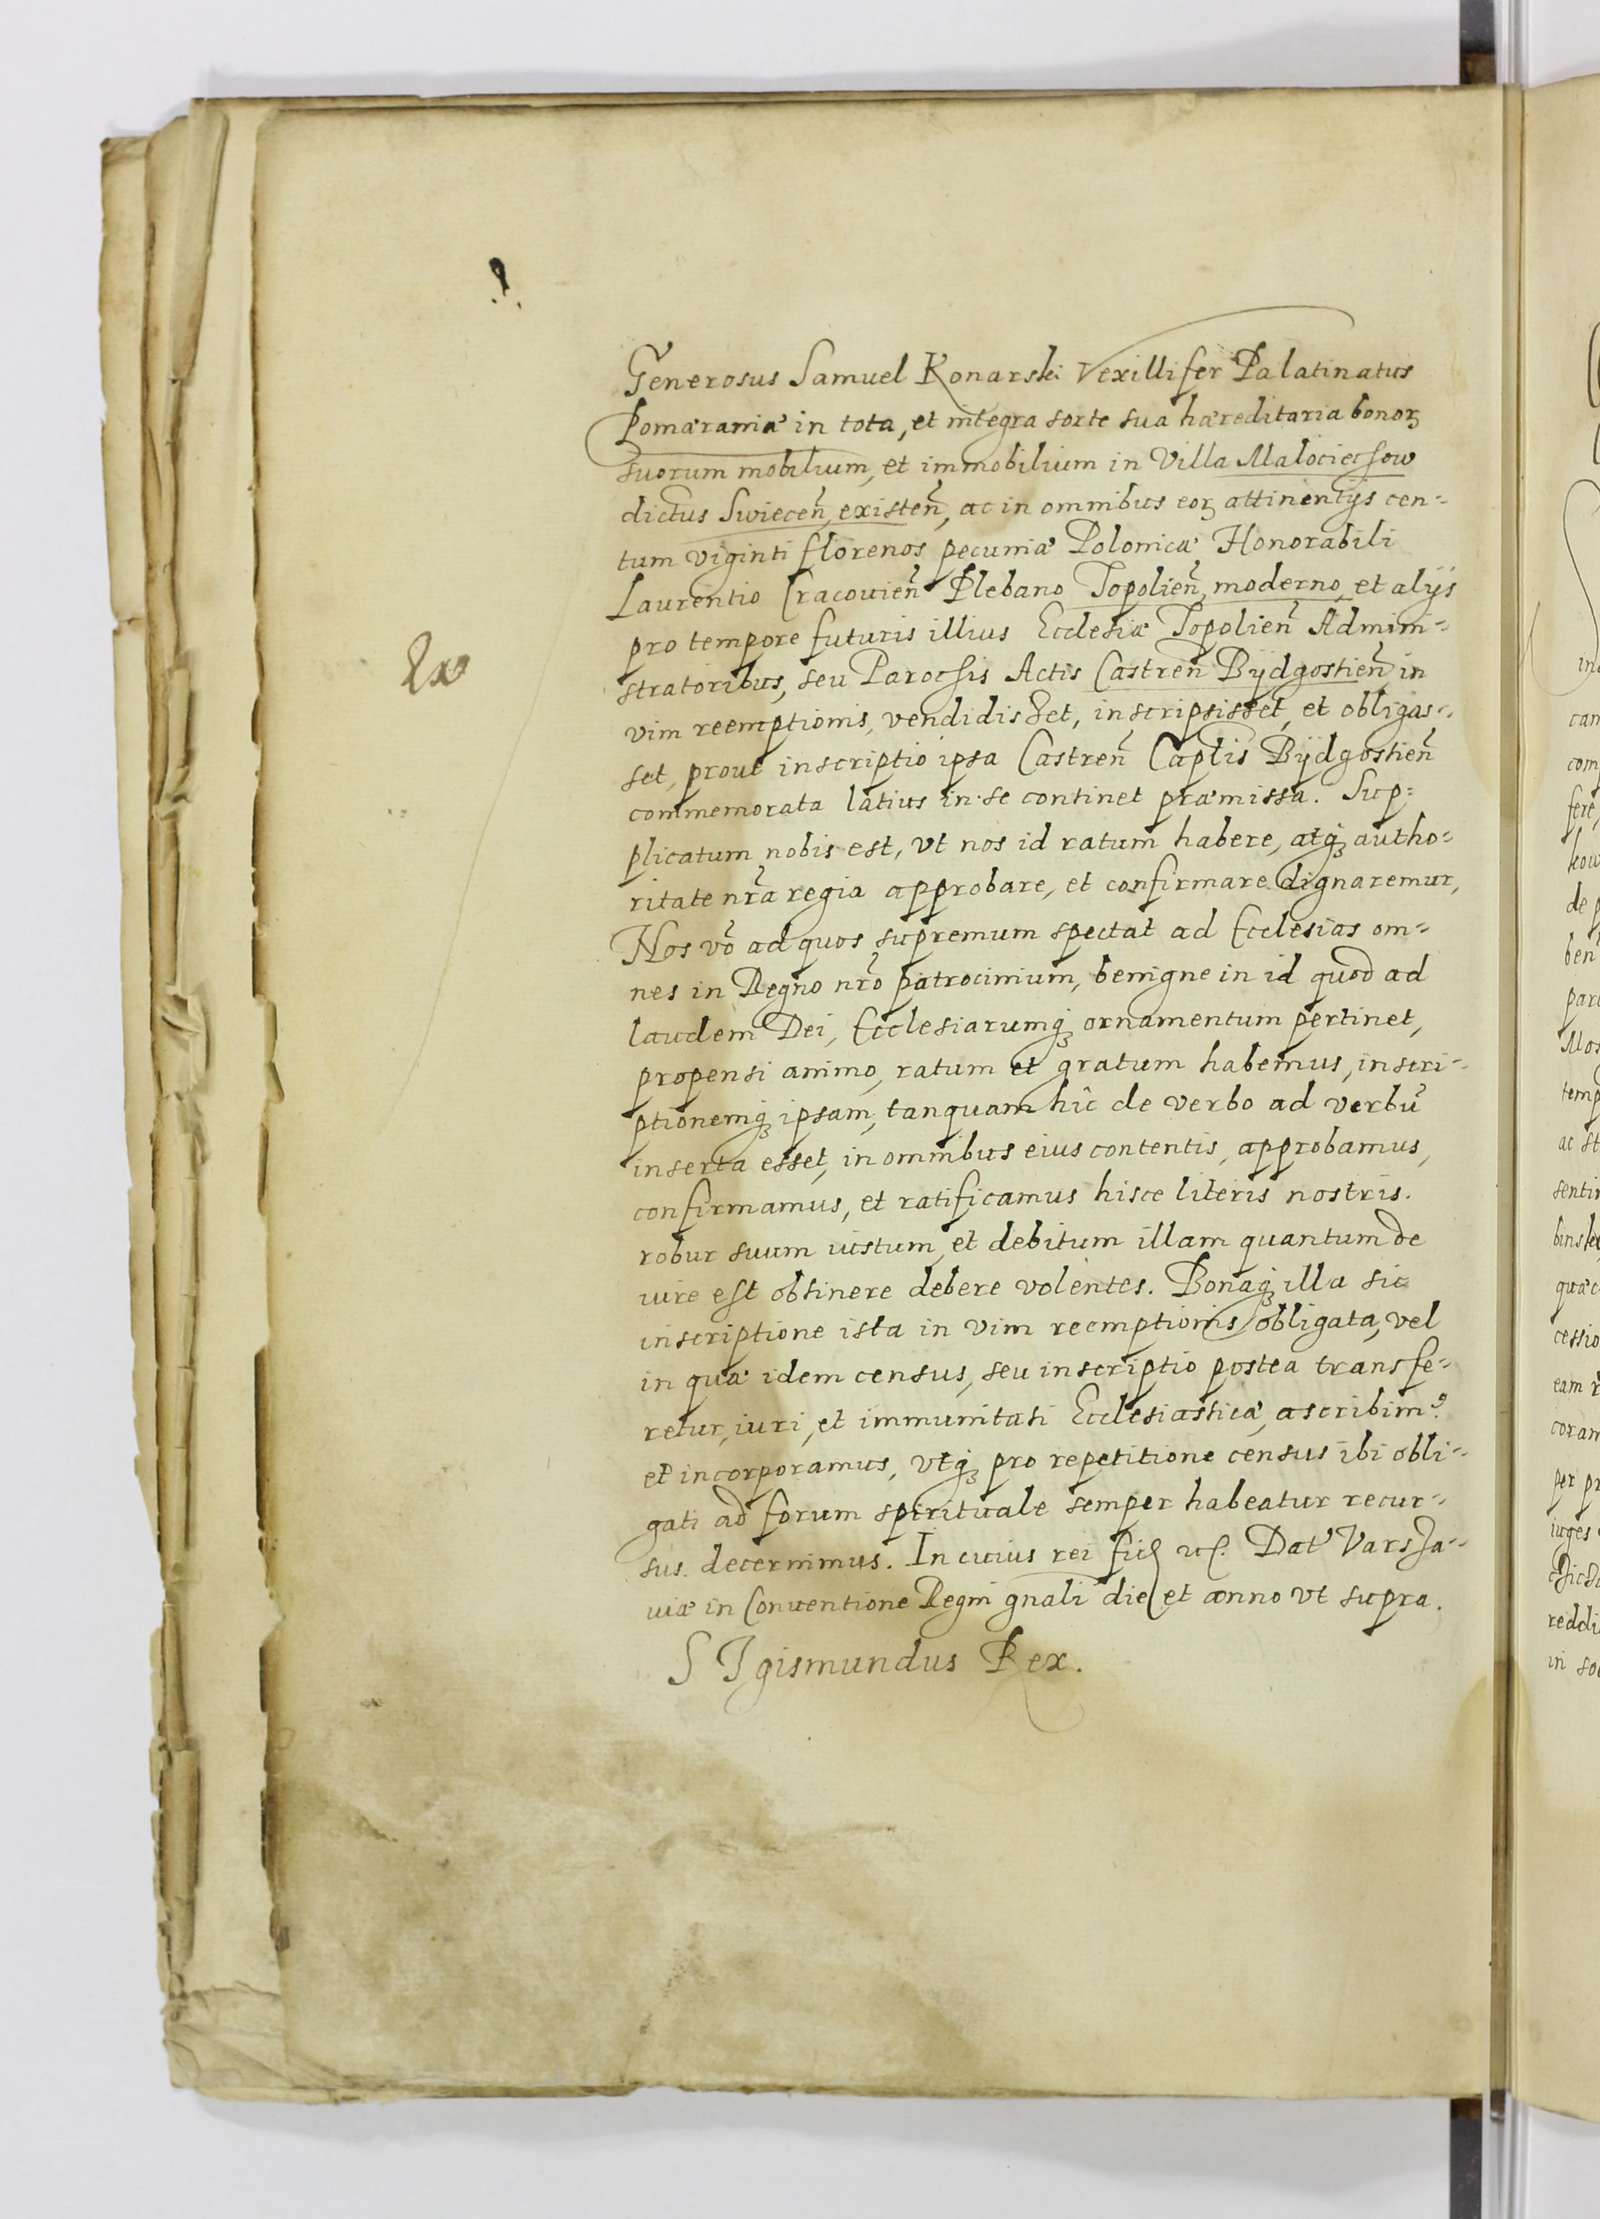 Generosus Samuel Konarski Vexillifer Palatinatus
Pomæraniæ in tota, et integra sorte sua hæreditaria bonorꝫ
suorum mobilium, et immobilium in Villa Malociechow
dictus Swiecen̄, existen̄, ac in omnibus eorꝫ attinentijs cen-
tum viginti florenos pecuniæ Polonicæ Honorabili
Laurentio Cracouien̄ Plebano Topolien̄, moderno, et alijs
pro tempore futuris illius Ecclesiæ Topolien̄ Admini-
stratoribus, seu Parochis Actis Castren̄ Bÿdgostien̄ in
vim reemptionis, vendidisset, inscripsisset, et obligas-
set, prout inscriptio ipsa Castren̄ Caplis Bÿdgostien̄
commemorata latius in se continet præmissa. Sup=
plicatum nobis est, vt nos id ratum habere, atqꝫ autho=
ritate nr̄a regia approbare, et confirmare dignaremur,
Nos vō ad quos supremum spectat ad Ecclesias om-
nes in Regno nr̄o patrocinium, benigne in id quod ad
laudem Dei, Ecclesiarumqꝫ ornamentum pertinet,
propensi animo, ratum et gratum habemus, inscri-
ptionemqꝫ ipsam, tanquam hîc de verbo ad verbū
inserta esset, in omnibus eius contentis, approbamus,
confirmamus, et ratificamus hisce literis nostris.
robur suum iustum, et debitum illam quantum de
iure est obtinere debere volentes. Bonaqꝫ illa sic
inscriptione ista in vim reemptionis obligata, vel
in quæ idem census, seu inscriptio postea transfe-
retur, iuri, et immunitati Ecclesiasticæ, ascribimꝰ.
et incorporamus, vtqꝫ pro repetitione census ibi obli-
gati ad forum spirituale semper habeatur recur-
sus. decernimus. In cuius rei fid etc. Dat Varssa-
uiæ in Conuentione Regni gnali die et anno vt supra.
SIgismundus Rex.